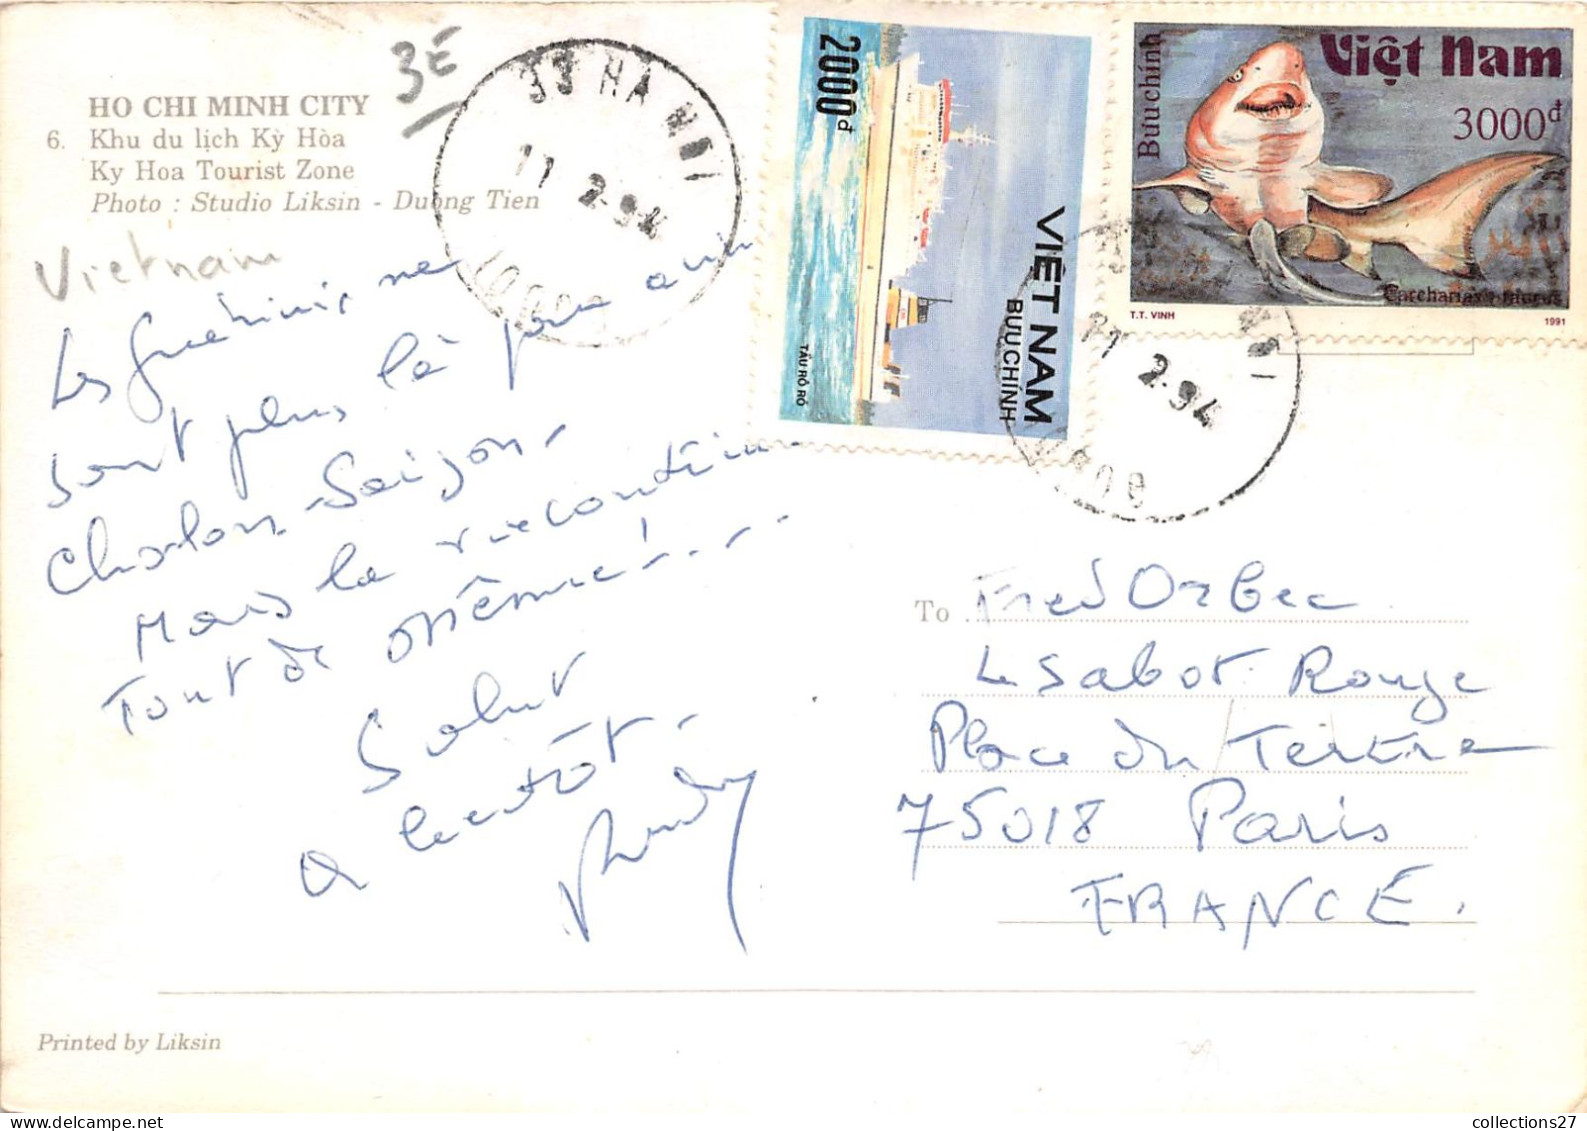 HO CHI MINH CITY
6. Khu du lịch Kỳ Hòa
Ky Hoa Tourist Zone
Photo : Studio Liksin - Duong Tien
3E
Vietnam
33 HA NOI
11 2-94
2000đ
VIỆT NAM
BƯU CHÍNH
TÀU RÔ RÔ
Bưu chính
Việt Nam
3000đ
Carcharias taurus
T.T. VINH
1991
11 2-94
Les ne
sont plus là pour
Cholon-Saigon-
Mais la
Tout de même! - - -
Salut
a bientôt-
To Fred Orbec
Le Sabot Rouge
Place du Tertre
75018 Paris
FRANCE.
Printed by Liksin
collections27